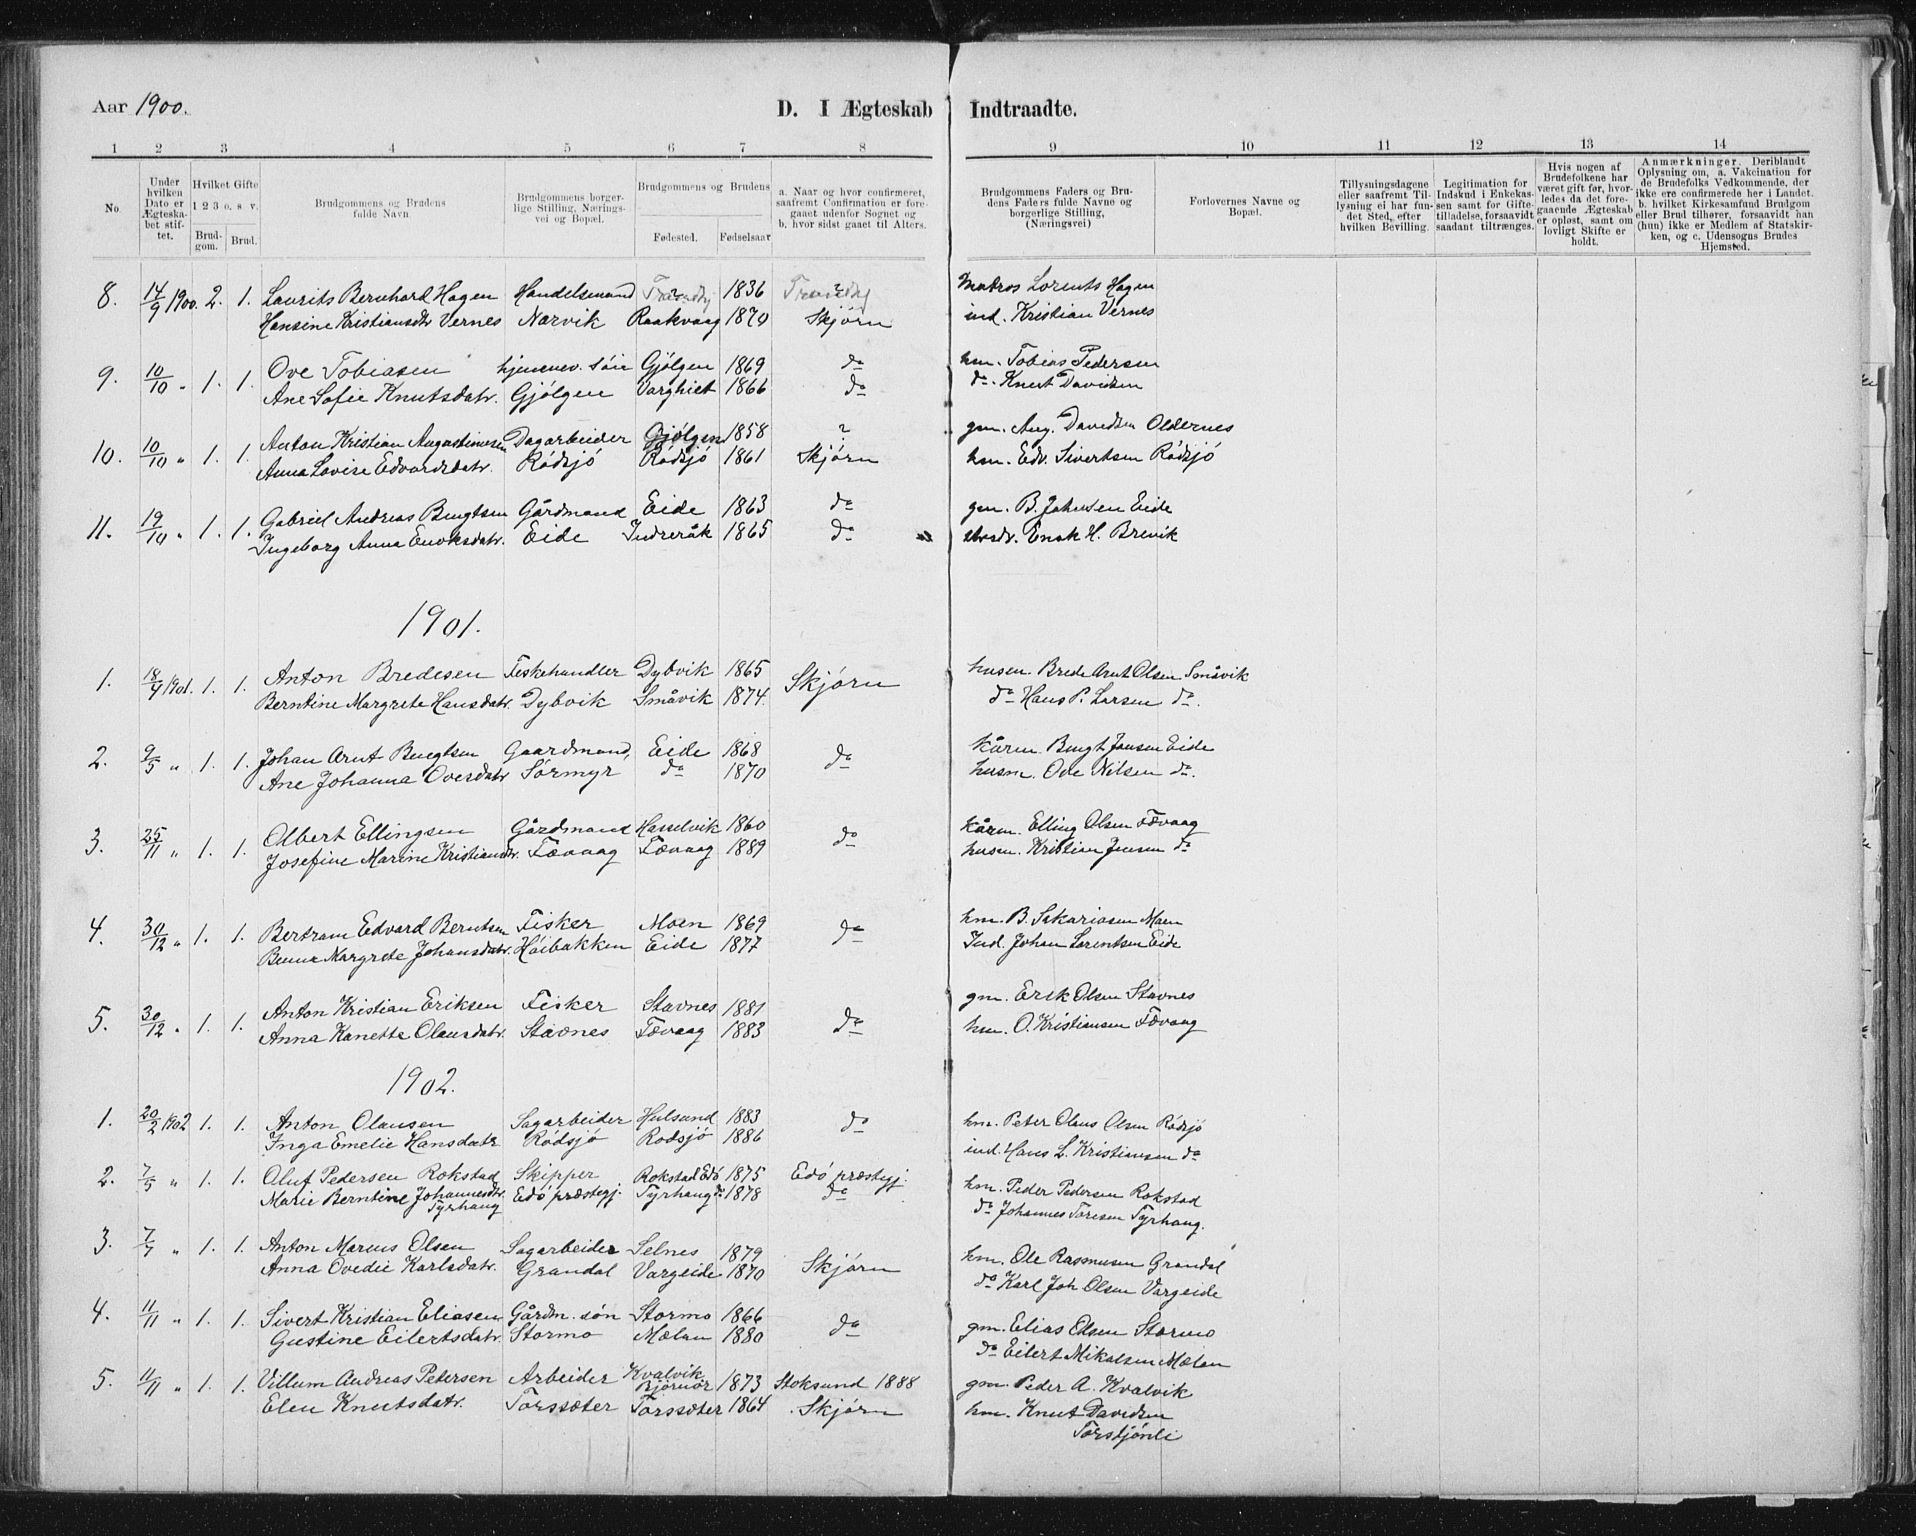 Aar 1900. D. I Ægteskab Indtraadte.
1 2 3 4 5 6 7 8 9 10 11 12 13 14
No.
Under hvilken Dato er Ægteskabet stiftet.
Hvilket Gifte
1 2 3 o. s. v.
Brudgom. Brud.
Brudgommens og Brudens fulde Navn.
Brudgommens borgerlige Stilling, Næringsvei og Bopæl.
Brudgommens og Brudens
Fødested. Fødselsaar
a. Naar og hvor confirmeret, saafremt Confirmation er foregaaet udenfor Sognet og b. hvor sidst gaaet til Alters.
Brudgommens Faders og Brudens Faders fulde Navne og borgerlige Stilling, (Næringsvei)
Forlovernes Navne og Bopæl.
Tillysningsdagene eller saafremt Tillysning ei har fundet Sted, efter hvilken Bevilling.
Legitimation for Indskud i Enkekassen samt for Giftetilladelse, forsaavidt saadant tiltrænges.
Hvis nogen af Brudefolkene har været gift før, hvorledes da det foregaaende Ægteskab er opløst, samt om lovligt Skifte er holdt.
Anmærkninger. Deriblandt Oplysning om, a. Vakcination for de Brudefolks Vedkommende, der ikke ere confirmerede her i Landet. b. hvilket Kirkesamfund Brudgom eller Brud tilhører, forsaavidt han (hun) ikke er Medlem af Statskirken, og c. Udensogns Brudes Hjemsted.
8. 14/9 1900. 2. 1. Laurits Bernhard Hagen Handelsmand 1836 Matros Lorents Hagen
Hansine Kristiansdtr Vernes Narvik Raakvaag 1870 Skjørn ind. Kristian Vernes
9. 10/10 " 1. 1. Ove Tobiasen hjemmev. søn Gjølgen 1869 do hm. Tobias Pedersen
Ane Sofie Knutsdatr. Gjølgen Varghiet 1866 do do. Knut Davidsen
10. 10/10 " 1. 1. Anton Kristian Augustinusen Dagarbeider Gjølgen 1858 ? gm. Aug. Davidsen Oldernes
Anna Lovise Edvardsdatr. Rødsjø Rødsjø 1861 Skjørn hm. Edv. Sivertsen Rødsjø
11. 19/10 " 1. 1. Gabriel Andreas Bengtsen Gårdmand Eide 1863 do gm. B. Johnsen Eide
Ingeborg Anna Enoksdatr. Eide Indreråk 1865 do Enok H. Brevik
1901.
1. 18/4 1901. 1. 1. Anton Bredesen Fiskehandler Dybvik 1865 Skjørn husm. Brede Arnt Olsen Småvik
Berntine Margrete Hansdatr. Dybvik Småvik 1874. do Hans P. Larsen do.
2. 9/5 " 1. 1. Johan Arnt Bengtsen Gaardmand, Eide 1868 do kårm. Bengt Jonsen Eide
Ane Johanna Ovesdatr Sørmyr do 1870 husm. Ove Nilsen do.
3. 25/11 " 1. 1. Olbert Ellingsen Gårdmand Hasselvik 1860 do kårm. Elling Olsen Fævaag
Josefine Marine Kristiansdtr. Fævaag Fævaag 1889 husm. Kristian Jensen do
4. 30/12 " 1. 1. Bertram Edvard Berntsen Fisker Moen 1869 do hm. B. Sakariasen Moen
Margrete Johansdatr. Høibakken Eide 1877 Ind. Johan Lorentsen Eide
5. 30/12 " 1. 1. Anton Kristian Eriksen Fisker Stavnes 1881 do gm. Erik Olsen Stavnes
Anna Kanette Olausdatr. Stavnes Fævaag 1883 hm. O. Kristiansen Fævaag
1902.
1. 20/2 1902 1. 1. Anton Olausen Sagarbeider Hulsund 1883 do hm. Peter Olaus Olsen Rødsjø
Inga Emelie Hansdatr Rødsjø Rødsjø 1886 ind. Hans L. Kristiansen do
2. 7/5 " 1. 1. Oluf Pedersen Rokstad Skipper Rokstad Edø 1875 Edø præstegj. hm. Peder Pedersen Rokstad
Marie Berntine Johannesdtr. Tyrhaug Edø præstegj. Tyrhaug do 1878 do do Johannes Toresen Tyrhaug.
3. 7/7 " 1. 1. Anton Marius Olsen Sagarbeider Selnes 1879 hm. Ole Rasmusen Grandal
Anna Ovedie Karlsdatr. Grandal Vargeide 1870 Skjørn do Karl Joh. Olsen Vargeide
4. 11/11 " 1. 1. Sivert Kristian Eliasen Gårdm. søn Stormo 1866 do gm. Elias Olsen Stormo
Gustine Eilertsdatr. Stormo Mælan 1880 do Eilert Mikalsen Mælan
5. 11/11 " 1. 1. Villum Andreas Petersen Arbeider Kvalvik Bjørnør 1873 Stoksund 1888 gm. Peder A. Kvalvik
Elen Knutsdatr. Torssæter Torssæter 1864 Skjørn hm. Knut Davidsen
Torstjønli